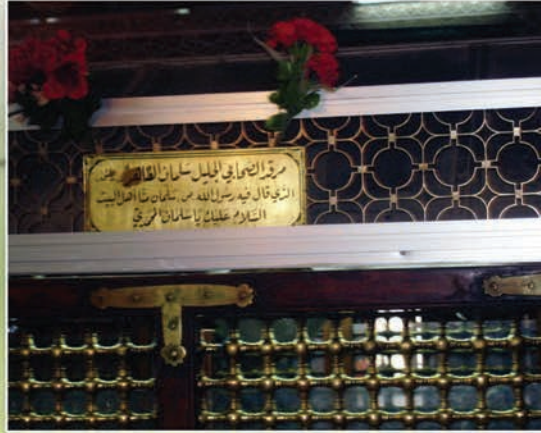 مرقد الصحابي الجليل سلمان الطاهر
الذي قال فيه رسول الله ص سلمان منا اهل البيت
السلام عليك يا سلمان المحمدي